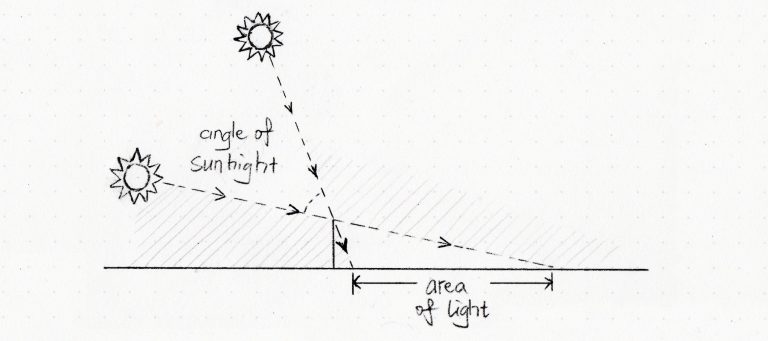 angle of
sunlight
area
of light